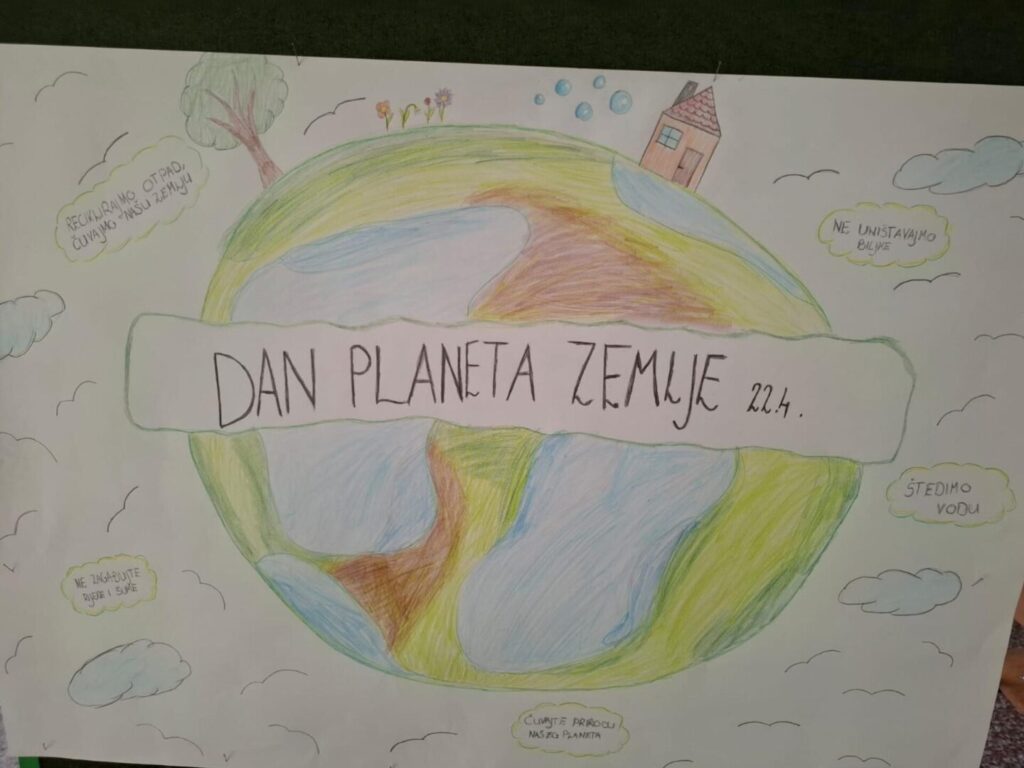 RECIKLIRAJMO OTPAD,
ČUVAJMO NAŠU ZEMLJU
NE UNIŠTAVAJMO
BILJKE
DAN PLANETA ZEMLJE 22.4.
ŠTEDIMO
VODU
NE ZAGAĐUJTE
RIJEKE I ŠUME
ČUVAJTE PRIRODU
NAŠEG PLANETA